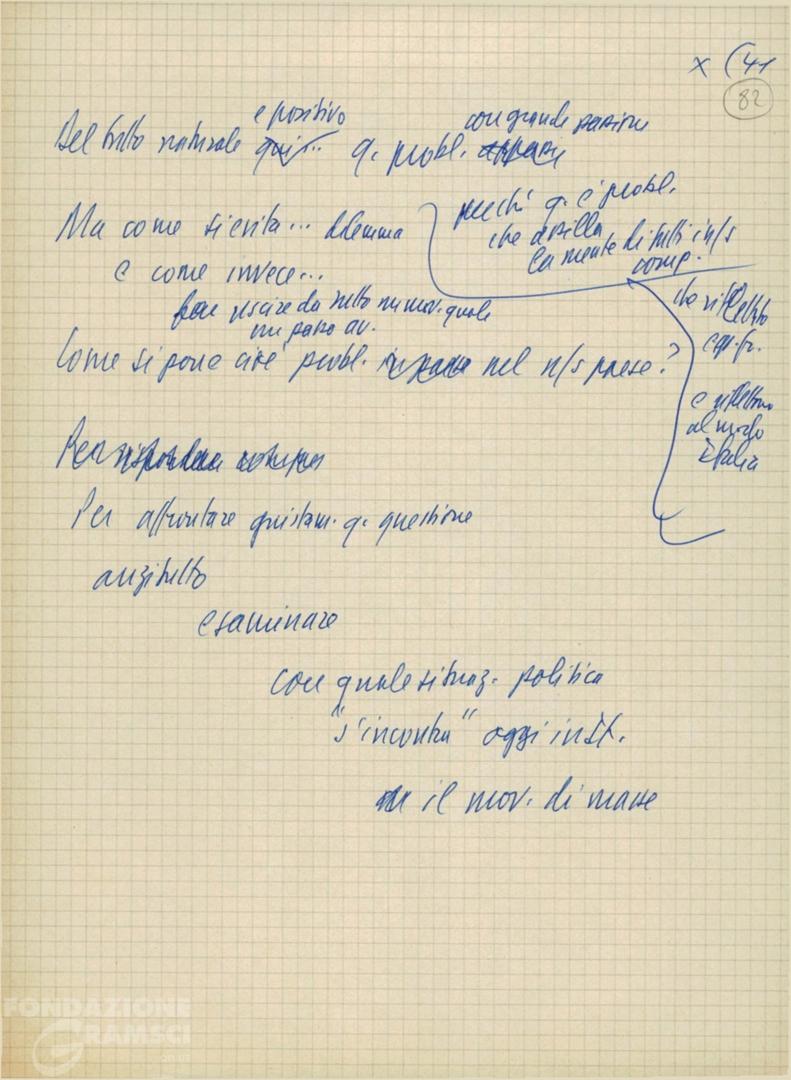 x (41
82
e positivo
con grande passione
Del tutto naturale qui... q. probl. appare
perché q. è probl.
che assilla
la mente di tutti i n/s
comp.
Ma come si evita... dilemma
e come invece...
fare uscire da tutto un mov. quale
un passo av.
che riflettono
esp. fr.
e riflettono
al modo
Italia
Come si pone cioè probl. nel n/s paese?
Per
Per affrontare giustam. q. questione
anzitutto
esaminare
con quale situaz. politica
"s'incontra" oggi in It.
il mov. di masse
FONDAZIONE
GRAMSCI